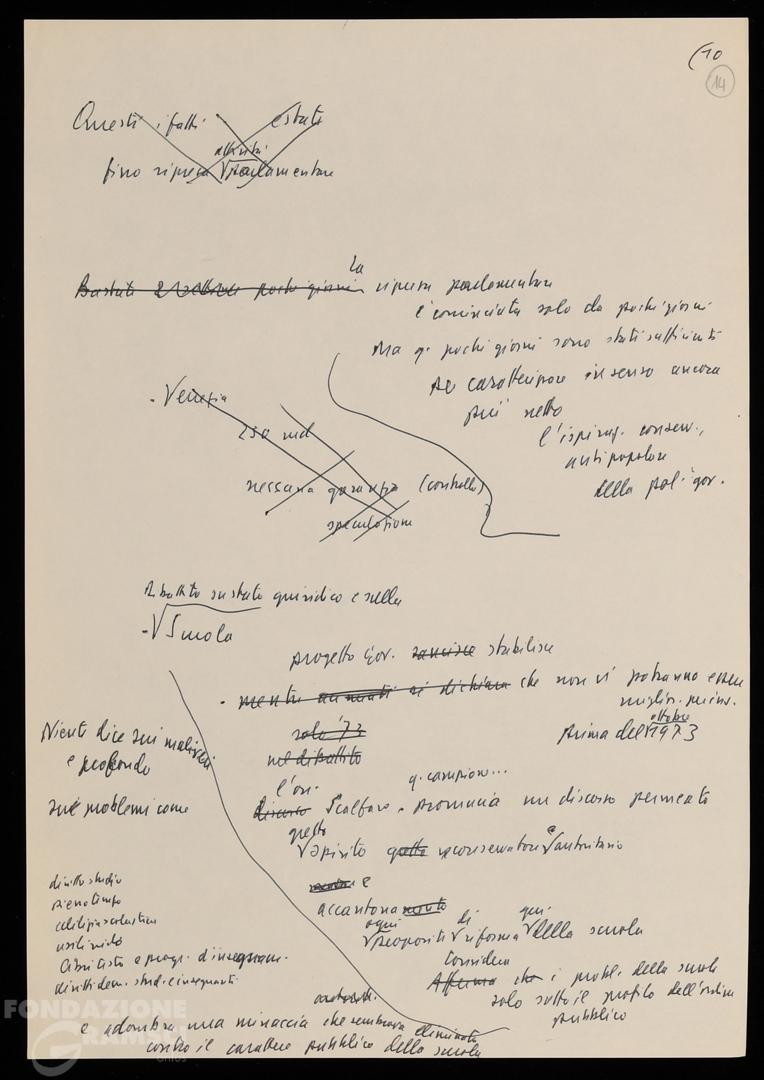 (10
14
Questi i fatti estate
attività
fino ripresa parlamentare
La
Bastati pochi giorni ripresa parlamentare
è cominciata solo da pochi giorni
Ma q. pochi giorni sono stati sufficienti
per caratterizzare in senso ancora
più netto
l'ispiraz. conserv.,
antipopolare
della pol. gov.
- Venezia
250 md
nessuna garanzia (controllo)
speculazione
Dibattito su stato giuridico e sulla
- Scuola
progetto gov. sancisce stabilisce
- mentre si dichiara che non vi potranno essere
miglior.
solo '73
ottobre
prima del 1973
nel dibattito
Niente dice sui
e profondo
l'on. q. campione...
discorso Scalfaro pronuncia un discorso permeato
sui problemi come
questo
spirito quello conservatore e autoritario
e
diritto studio
pieno tempo
edilizia scolastica
accantonamento
ogni di qui
propositi riforma della scuola
libri testo e progr. d'insegnam.
diritti dem. stud. e insegnanti
considera
Afferma che i probl. della scuola
solo sotto il profilo dell'ordine
pubblico
e adombra una minaccia che sembrava eliminata
contro il carattere pubblico della scuola
FONDAZIONE
GRAMSCI
ONLUS